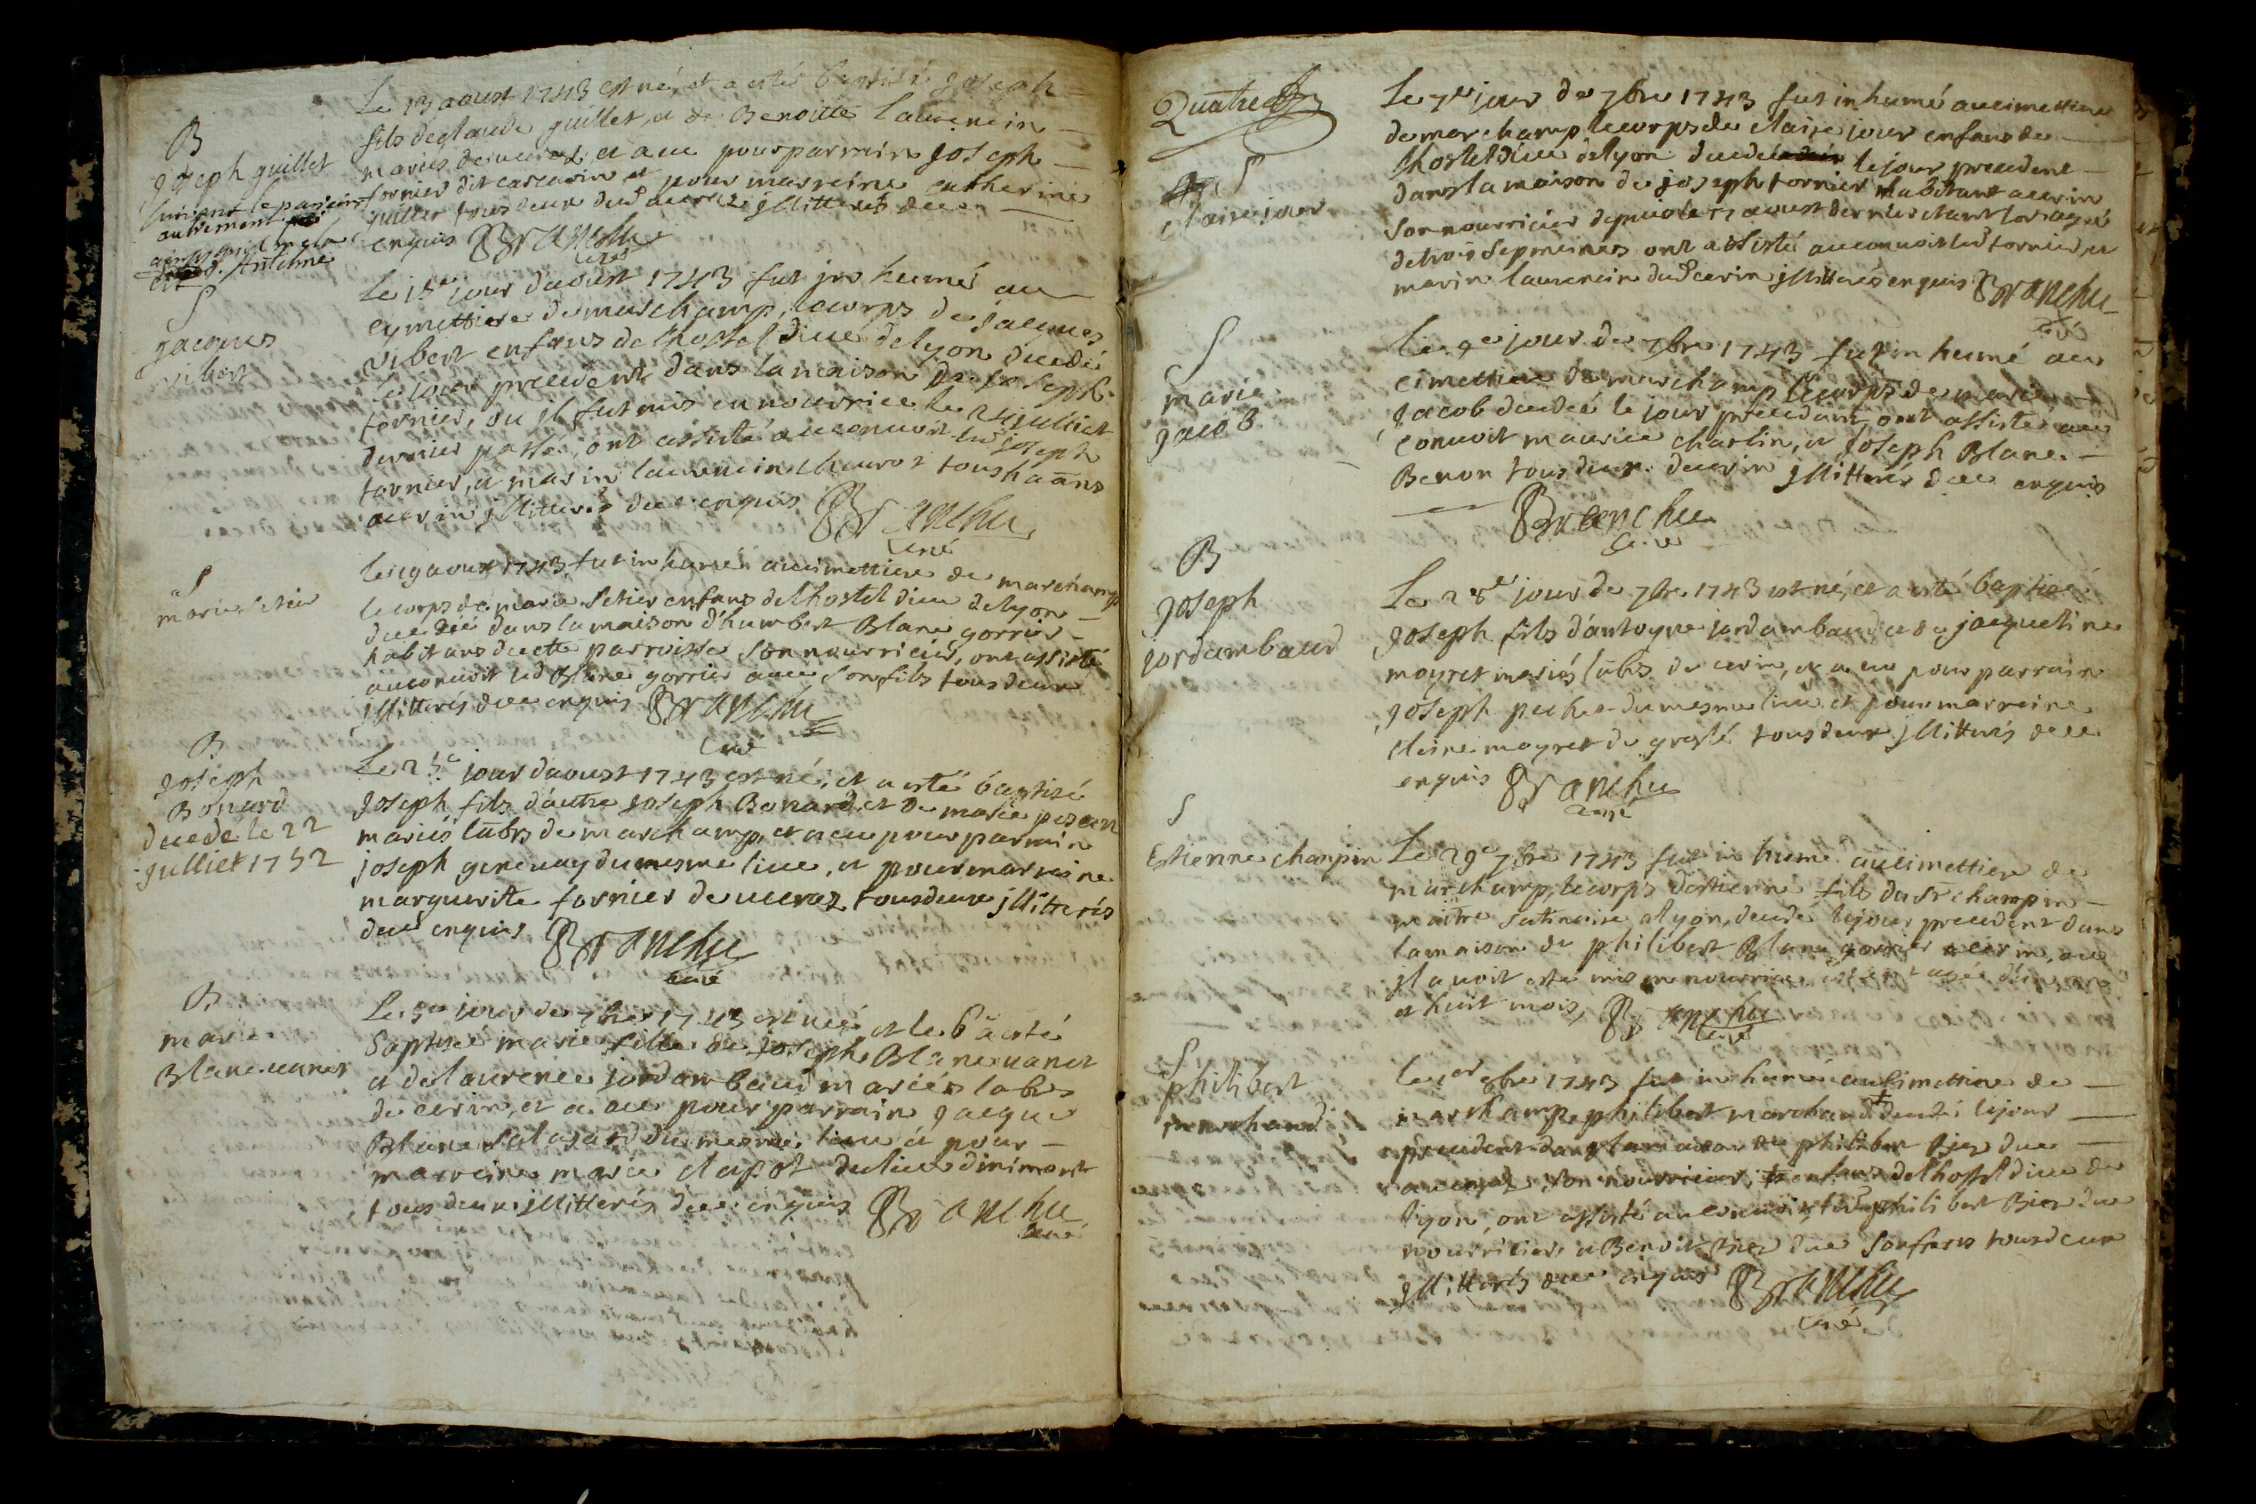 Le 13 aoust 1743 est né, et a esté baptisé Joseph
B
Joseph guillet
fils de glaude guillet, et de Benoitte laurencin
mariés de uceraz, et a eu pour parrain Joseph
fornier dit et pour marreine catherine
guillet tous deux dud illitterés de ce
enquis Branchu
curé
S
Jacques
vibert
Le 15e jour daoust 1743 fut jnhumé au
cymettiere de marchamp, le corps de jacques
vibert enfans de lhostel dieu de lyon decedé
le jour precedent dans la maison de Joseph
fornier, ou jl fut mis en nourrice le 24 julliet
dernier passé, ont assisté au convoit led Joseph
fornier, et marin laurencin tous ha~ans
a cerin jllitterés de ce enquis Branchu
curé
S
marie Setier
le 19 aoust 1743 fut inhumé au cimettiere de marchamp
le corps de marie Setier enfans de lhostel dieu de lyon
decedée dans la maison d'humbert Blanc gorrier
habitans de cette parroisse son nourricier, ont assisté
au convoit led Blanc gorrier avec son fils tous deux
jllitterés de ce enquis Branchu
curé
B
Joseph
Bonard
decede le 22
julliet 1752
Le 25e jour daoust 1743 est né, et a esté baptisé
Joseph fils d'autre Joseph Bonard, et de marie
mariés labrs de marchamp, et a eu pour parrain
joseph genevay du mesme lieu, et pour marreine
marguerite fornier de uceraz tous deux jllitterés
de ce enquis Branchu
curé
B
marie
Blanc vanet
Le 5e jour de 7bre 1743 est née et le 6e a esté
baptisée marie fille de Joseph Blanc vanet
et de laurence jordambaud mariés labrs
de cerin, et a eu pour parrain Jacque
Blanc Salagard du mesme lieu et pour
marreine marie clapot du lieu dinimont
tous deux jllitterés de ce enquis Branchu
curé
Quatre
S
claire jour
Le 7e jour de 7bre 1743 fut inhumé au cimettiere
de marchamp le corps de claire jour enfans de
lhostel dieu de lyon decedée le jour precedent
dans la maison de joseph fornier habitant a cerin
son nourricier depuis le 17 aoust dernier étant lors agée
de trois sepmeines ont assisté au convoit led fornier, et
marin laurencin dud cerin jllitterés enquis Branchu
curé
S
marie
jacob
Le 9e jour de 7bre 1743 fut inhumé au
cimettiere de marchamp le corps de marie
Jacob decedée le jour precedant, ont assisté au
convoit maurice charlin, et Joseph Blanc
Benon tous deux de cerin jllitterés de ce enquis
Branchu
curé
B
Joseph
jordambaud
Le 25e jour de 7bre 1743 est né, et a esté baptisé
Joseph fils d'antoyne jordambaud et de jacqueline
moyret mariés labrs de cerin, et a eu pour parrain
Joseph du mesme lieu et pour marreine
claire moyret de groslé tous deux jllitterés de ce
enquis Branchu
curé
S
Estienne champin
Le 29e 7bre 1743 fut inhumé au cimettiere de
marchamp, le corps destienne fils du Sr champin
maitre satinaire a lyon, decede le jour precedent dans
la maison de philibert Blanc gorrier a cerin, ou
jl avoit esté mis en nourrice
et huit mois, Branchu
curé
S
philibert
marchand
Le 1er 8bre 1743 fut inhumé au cimettiere de
marchamp philibert marchand decedé le jour
precedent dans la maison de philibert
son nourricier, enfans de lhostel dieu de
lyon, ont assisté au convoit led philibert
nourricier, et Benoit son frere tous deux
jllitterés de ce enquis Branchu
curé